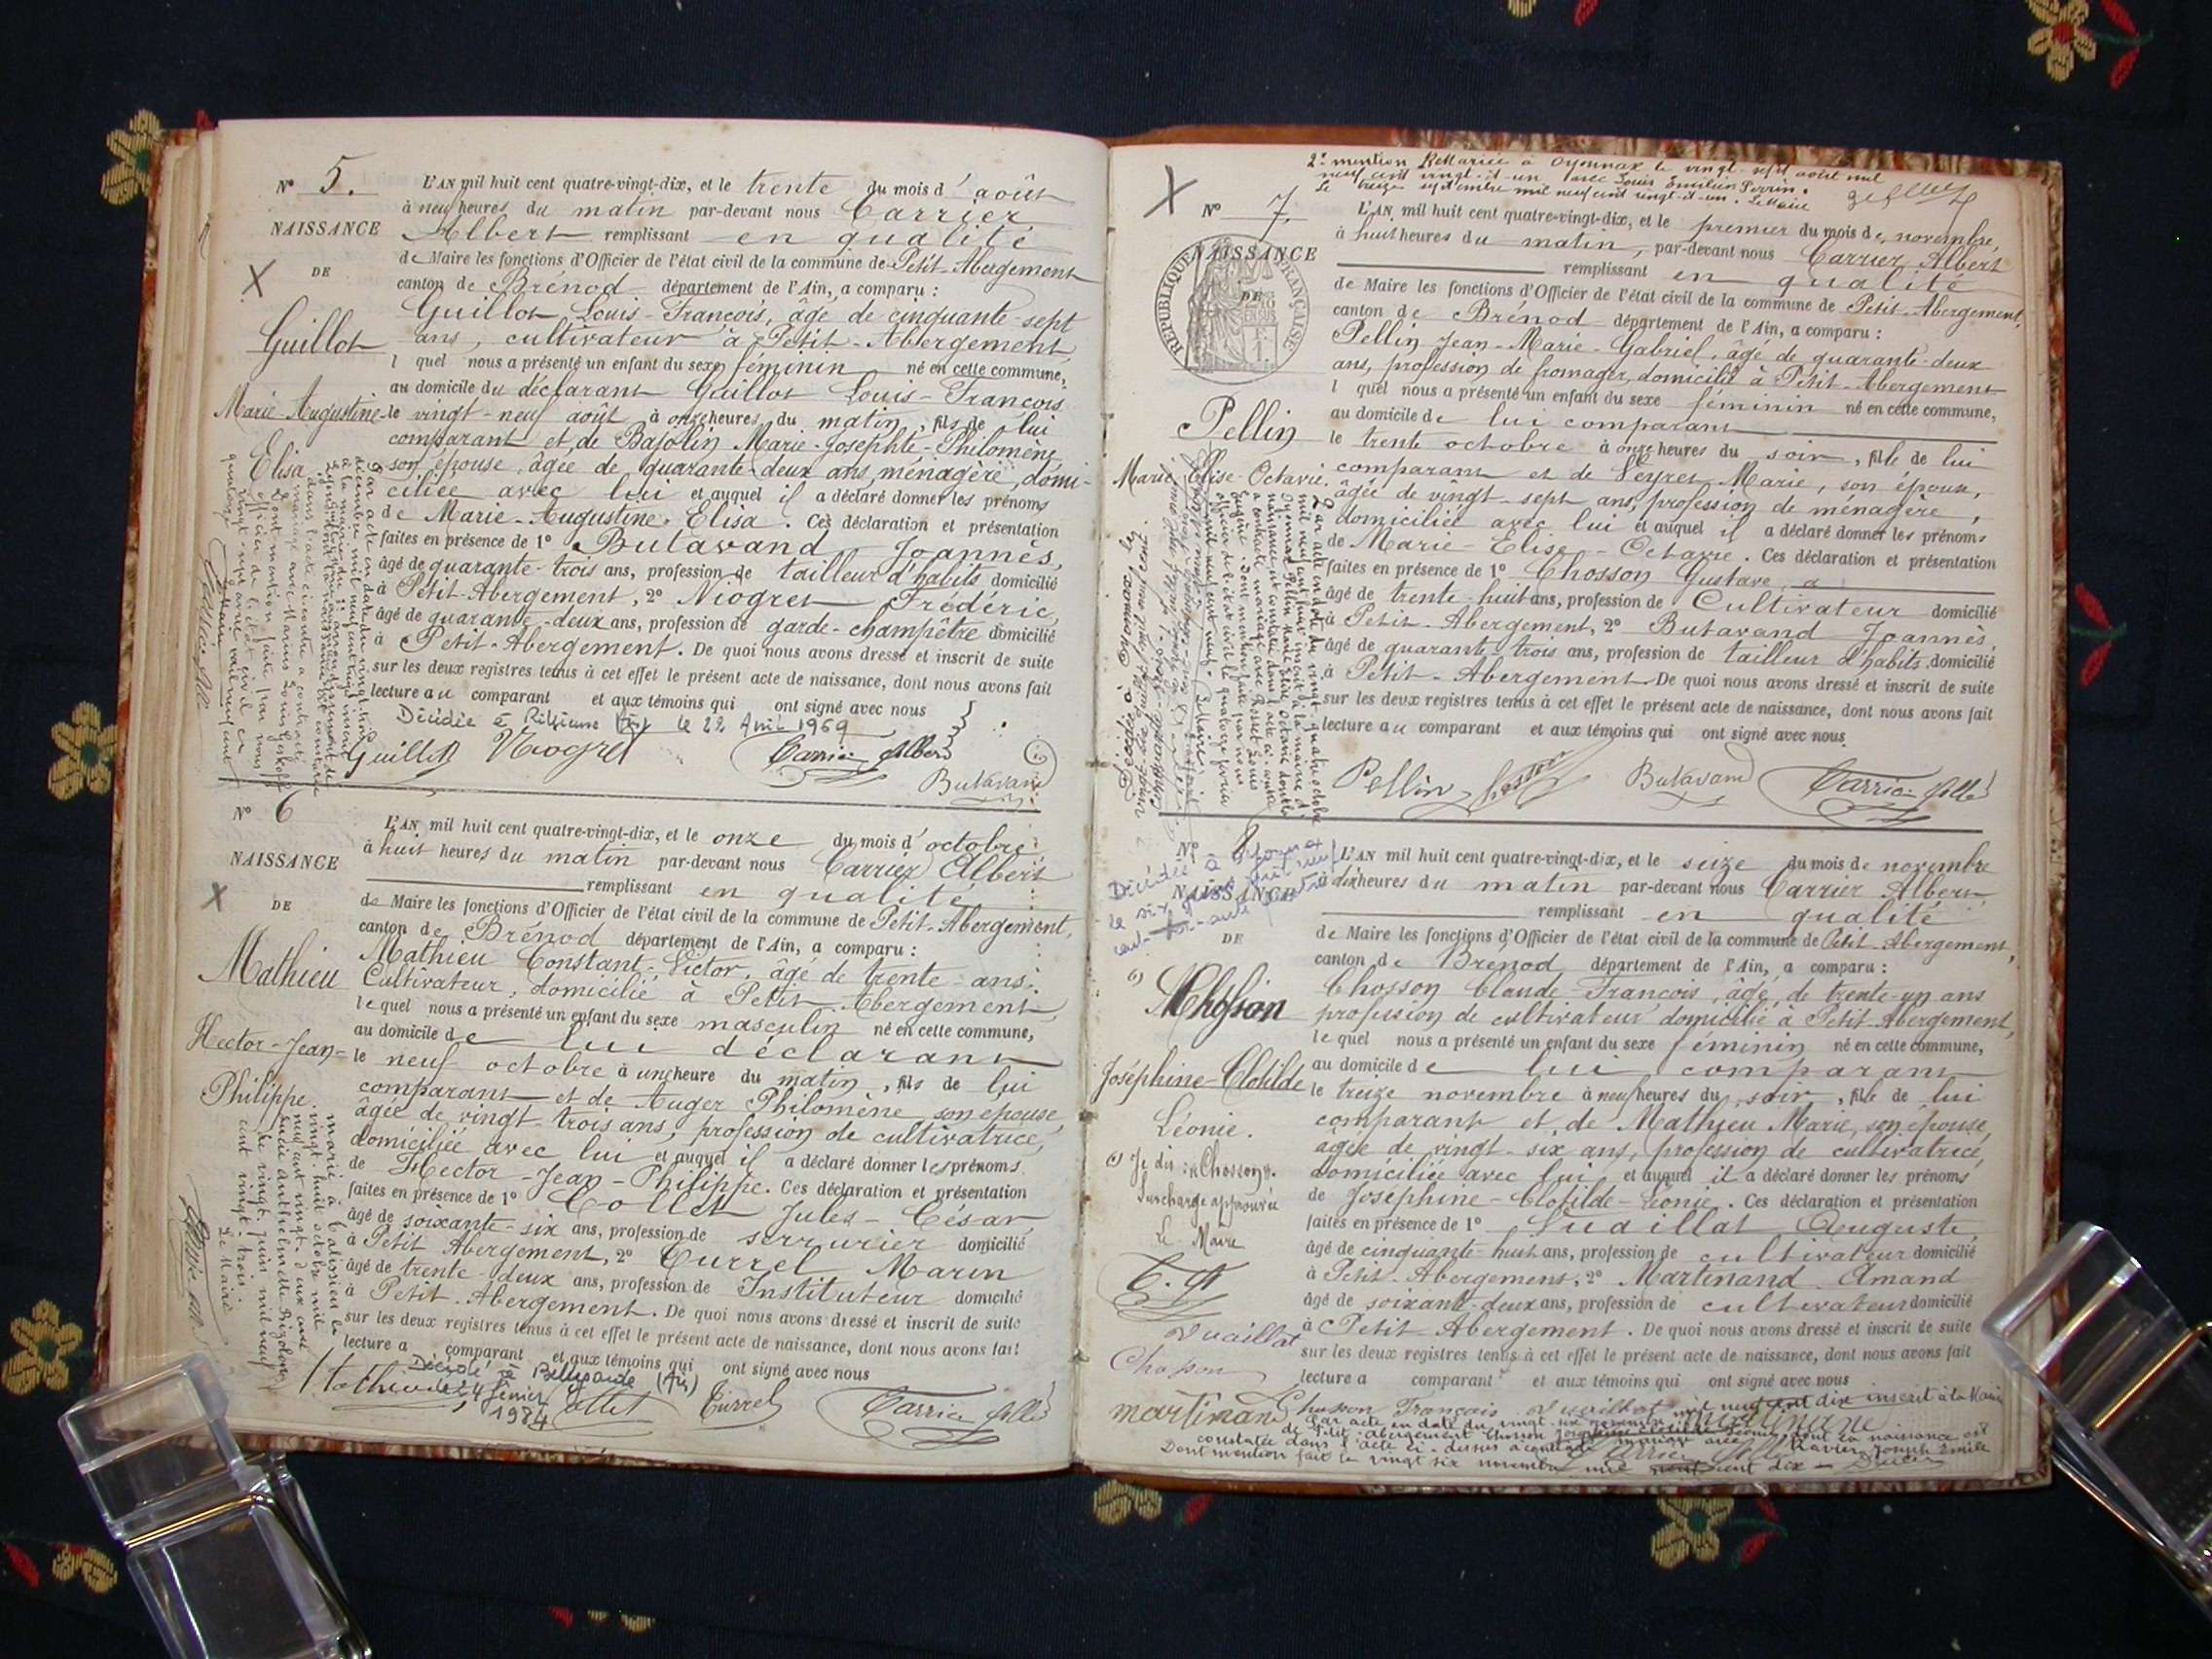 N° 5.
NAISSANCE
DE
Guillot
Marie-Augustine
Elisa
L'AN mil huit cent quatre-vingt-dix, et le trente du mois d'août
à neuf heures du matin par-devant nous Carrier
Albert remplissant en qualité
de Maire les fonctions d'Officier de l'état civil de la commune de Petit-Abergement
canton de Brénod département de l'Ain, a comparu :
Guillot Louis-François, âgé de cinquante-sept
ans, cultivateur à Petit-Abergement,
l quel nous a présenté un enfant du sexe féminin né en cette commune,
au domicile du déclarant Guillot Louis-François
le vingt-neuf août à onze heures du matin, fils de lui
comparant et de Bajolin Marie-Josephte-Philomène
son épouse, âgée de quarante-deux ans, ménagère, domi-
ciliée avec lui et auquel il a déclaré donner les prénoms
de Marie-Augustine-Elisa. Ces déclaration et présentation
faites en présence de 1° Butavand Joannès,
âgé de quarante-trois ans, profession de tailleur d'habits domicilié
à Petit-Abergement, 2° Niogret Frédéric,
âgé de quarante-deux ans, profession de garde-champêtre domicilié
à Petit-Abergement. De quoi nous avons dressé et inscrit de suite
sur les deux registres tenus à cet effet le présent acte de naissance, dont nous avons fait
lecture au comparant et aux témoins qui ont signé avec nous
Décédée à le 22 1969
Guillot Niogret Carrier Albert
Butavand
N° 6
NAISSANCE
DE
Mathieu
Hector-Jean-
Philippe
L'AN mil huit cent quatre-vingt-dix, et le onze du mois d'octobre
à huit heures du matin par-devant nous Carrier Albert
remplissant en qualité
de Maire les fonctions d'Officier de l'état civil de la commune de Petit-Abergement,
canton de Brénod département de l'Ain, a comparu :
Mathieu Constant-Victor, âgé de trente ans,
Cultivateur, domicilié à Petit-Abergement,
lequel nous a présenté un enfant du sexe masculin né en cette commune,
au domicile de lui déclarant
le neuf octobre à une heure du matin, fils de lui
comparant et de Auger Philomène son épouse,
âgée de vingt-trois ans, profession de cultivatrice,
domiciliée avec lui et auquel il a déclaré donner les prénoms
de Hector-Jean-Philippe. Ces déclaration et présentation
faites en présence de 1° Collet Jules-César,
âgé de soixante-six ans, profession de serrurier domicilié
à Petit Abergement, 2° Currel Marin
âgé de trente-deux ans, profession de Instituteur domicilié
à Petit-Abergement. De quoi nous avons dressé et inscrit de suite
sur les deux registres tenus à cet effet le présent acte de naissance, dont nous avons fait
lecture a comparant et aux témoins qui ont signé avec nous
Décédé à Bellegarde (Ain)
le 24 février
1984
Mathieu Collet Currel Carrier Albert
marié à le
vingt-huit octobre mil
neuf cent vingt-deux avec
le vingt juin mil neuf
cent vingt trois.
Le Maire
2e mention Remariée à Oyonnax le vingt-sept août mil
neuf cent vingt-et-un avec Louis Emilien Perrin.
Le treize septembre mil neuf cent vingt-et-un. Le Maire
N° 7.
NAISSANCE
DE
REPUBLIQUE FRANÇAISE
Pellin
Marie-Elise-Octavie.
L'AN mil huit cent quatre-vingt-dix, et le premier du mois de novembre,
à huit heures du matin, par-devant nous Carrier Albert
remplissant en qualité
de Maire les fonctions d'Officier de l'état civil de la commune de Petit-Abergement,
canton de Brénod département de l'Ain, a comparu :
Pellin Jean-Marie-Gabriel, âgé de quarante-deux
ans, profession de fromager, domicilié à Petit-Abergement
l quel nous a présenté un enfant du sexe féminin né en cette commune,
au domicile de lui comparant
le trente octobre à onze heures du soir, fille de lui
comparant et de Peyret Marie, son épouse,
âgée de vingt-sept ans, profession de ménagère,
domiciliée avec lui et auquel il a déclaré donner les prénoms
de Marie-Elise-Octavie. Ces déclaration et présentation
faites en présence de 1° Chosson Gustave, a
âgé de trente-huit ans, profession de Cultivateur domicilié
à Petit-Abergement, 2° Butavand Joannès,
âgé de quarante-trois ans, profession de tailleur d'habits domicilié
à Petit-Abergement. De quoi nous avons dressé et inscrit de suite
sur les deux registres tenus à cet effet le présent acte de naissance, dont nous avons fait
lecture au comparant et aux témoins qui ont signé avec nous
Pellin Chosson Butavand Carrier Albert
N° 8
NAISSANCE
DE
Chosson
Joséphine-Clotilde
Léonie.
Je dis : "Chosson".
Surcharge approuvée
Le Maire
C. A
Vuaillat
Chosson
Martinand
L'AN mil huit cent quatre-vingt-dix, et le seize du mois de novembre
à dix heures du matin par-devant nous Carrier Albert
remplissant en qualité
de Maire les fonctions d'Officier de l'état civil de la commune de Petit-Abergement,
canton de Brenod département de l'Ain, a comparu :
Chosson Claude-François, âgé de trente-un ans
profession de cultivateur domicilié à Petit-Abergement,
lequel nous a présenté un enfant du sexe féminin né en cette commune,
au domicile de lui comparant
le treize novembre à neuf heures du soir, fille de lui
comparant et de Mathieu Marie, son épouse,
âgée de vingt-six ans, profession de cultivatrice,
domiciliée avec lui et auquel il a déclaré donner les prénoms
de Joséphine-Clotilde-Léonie. Ces déclaration et présentation
faites en présence de 1° Vuaillat Auguste,
âgé de cinquante-huit ans, profession de cultivateur domicilié
à Petit-Abergement, 2° Martinand Amand
âgé de soixante-deux ans, profession de cultivateur domicilié
à Petit-Abergement. De quoi nous avons dressé et inscrit de suite
sur les deux registres tenus à cet effet le présent acte de naissance, dont nous avons fait
lecture a comparant et aux témoins qui ont signé avec nous
Chosson François Vuaillat
Par acte en date du vingt-six novembre mil neuf cent dix inscrit à la Mairie
de Petit-Abergement Chosson Joséphine Clotilde Léonie dont la naissance est
constatée dans l'acte ci-dessus a contracté mariage avec Ravier Joseph Emile
Dont mention fait le vingt six novembre mil neuf cent dix